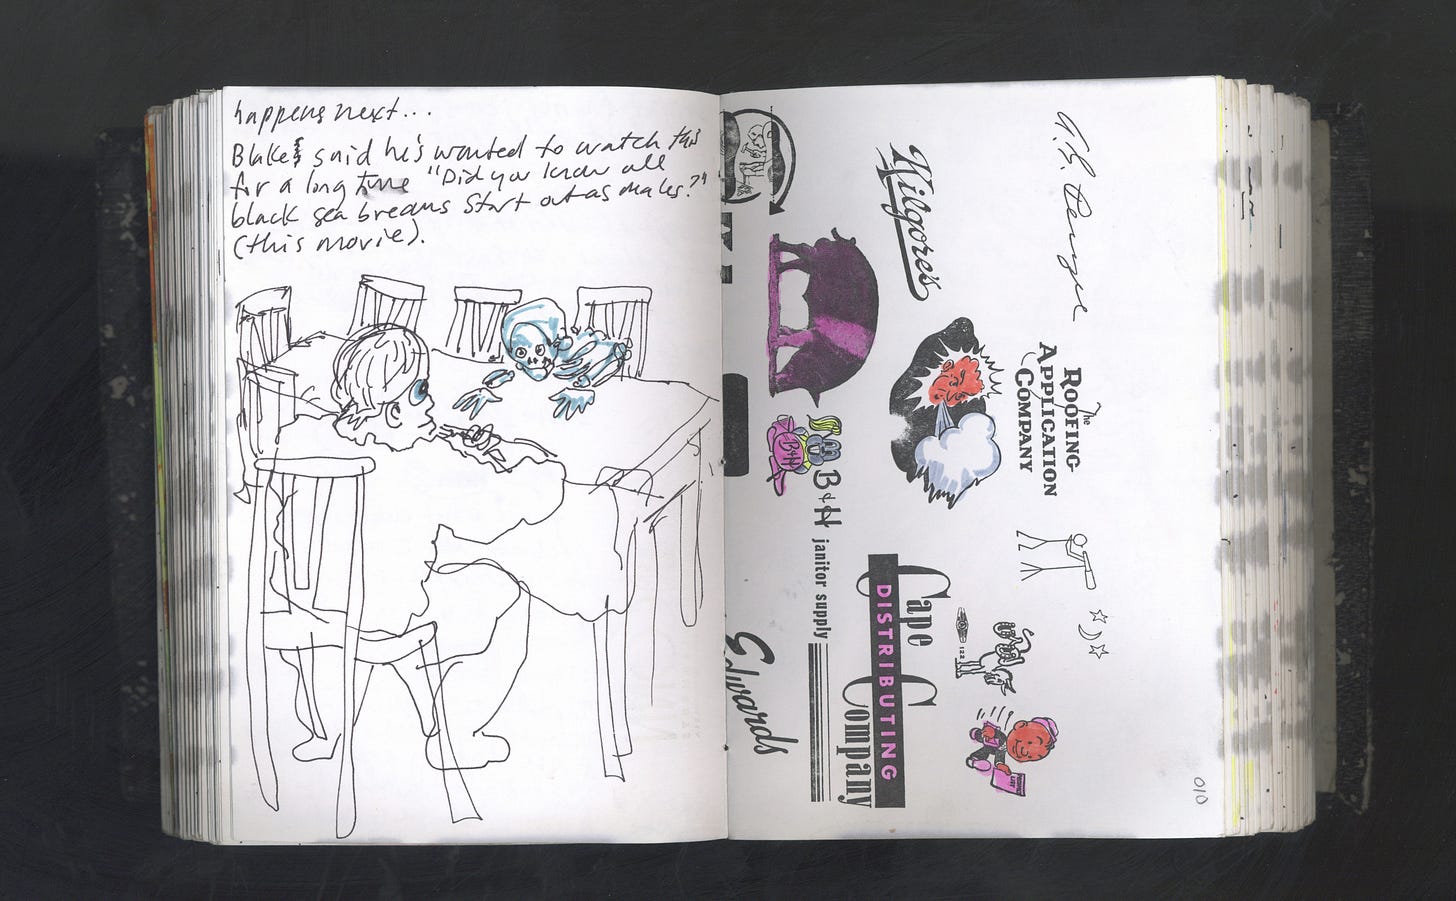 happens next...
Blake said he's wanted to watch this
for a long time "Did you know all
black sea breams start out as males?"
(this movie).
Kilgore's
The
ROOFING
APPLICATION
COMPANY
B&H
B&H janitor supply
Cape
DISTRIBUTING
Company
Edwards
122
010